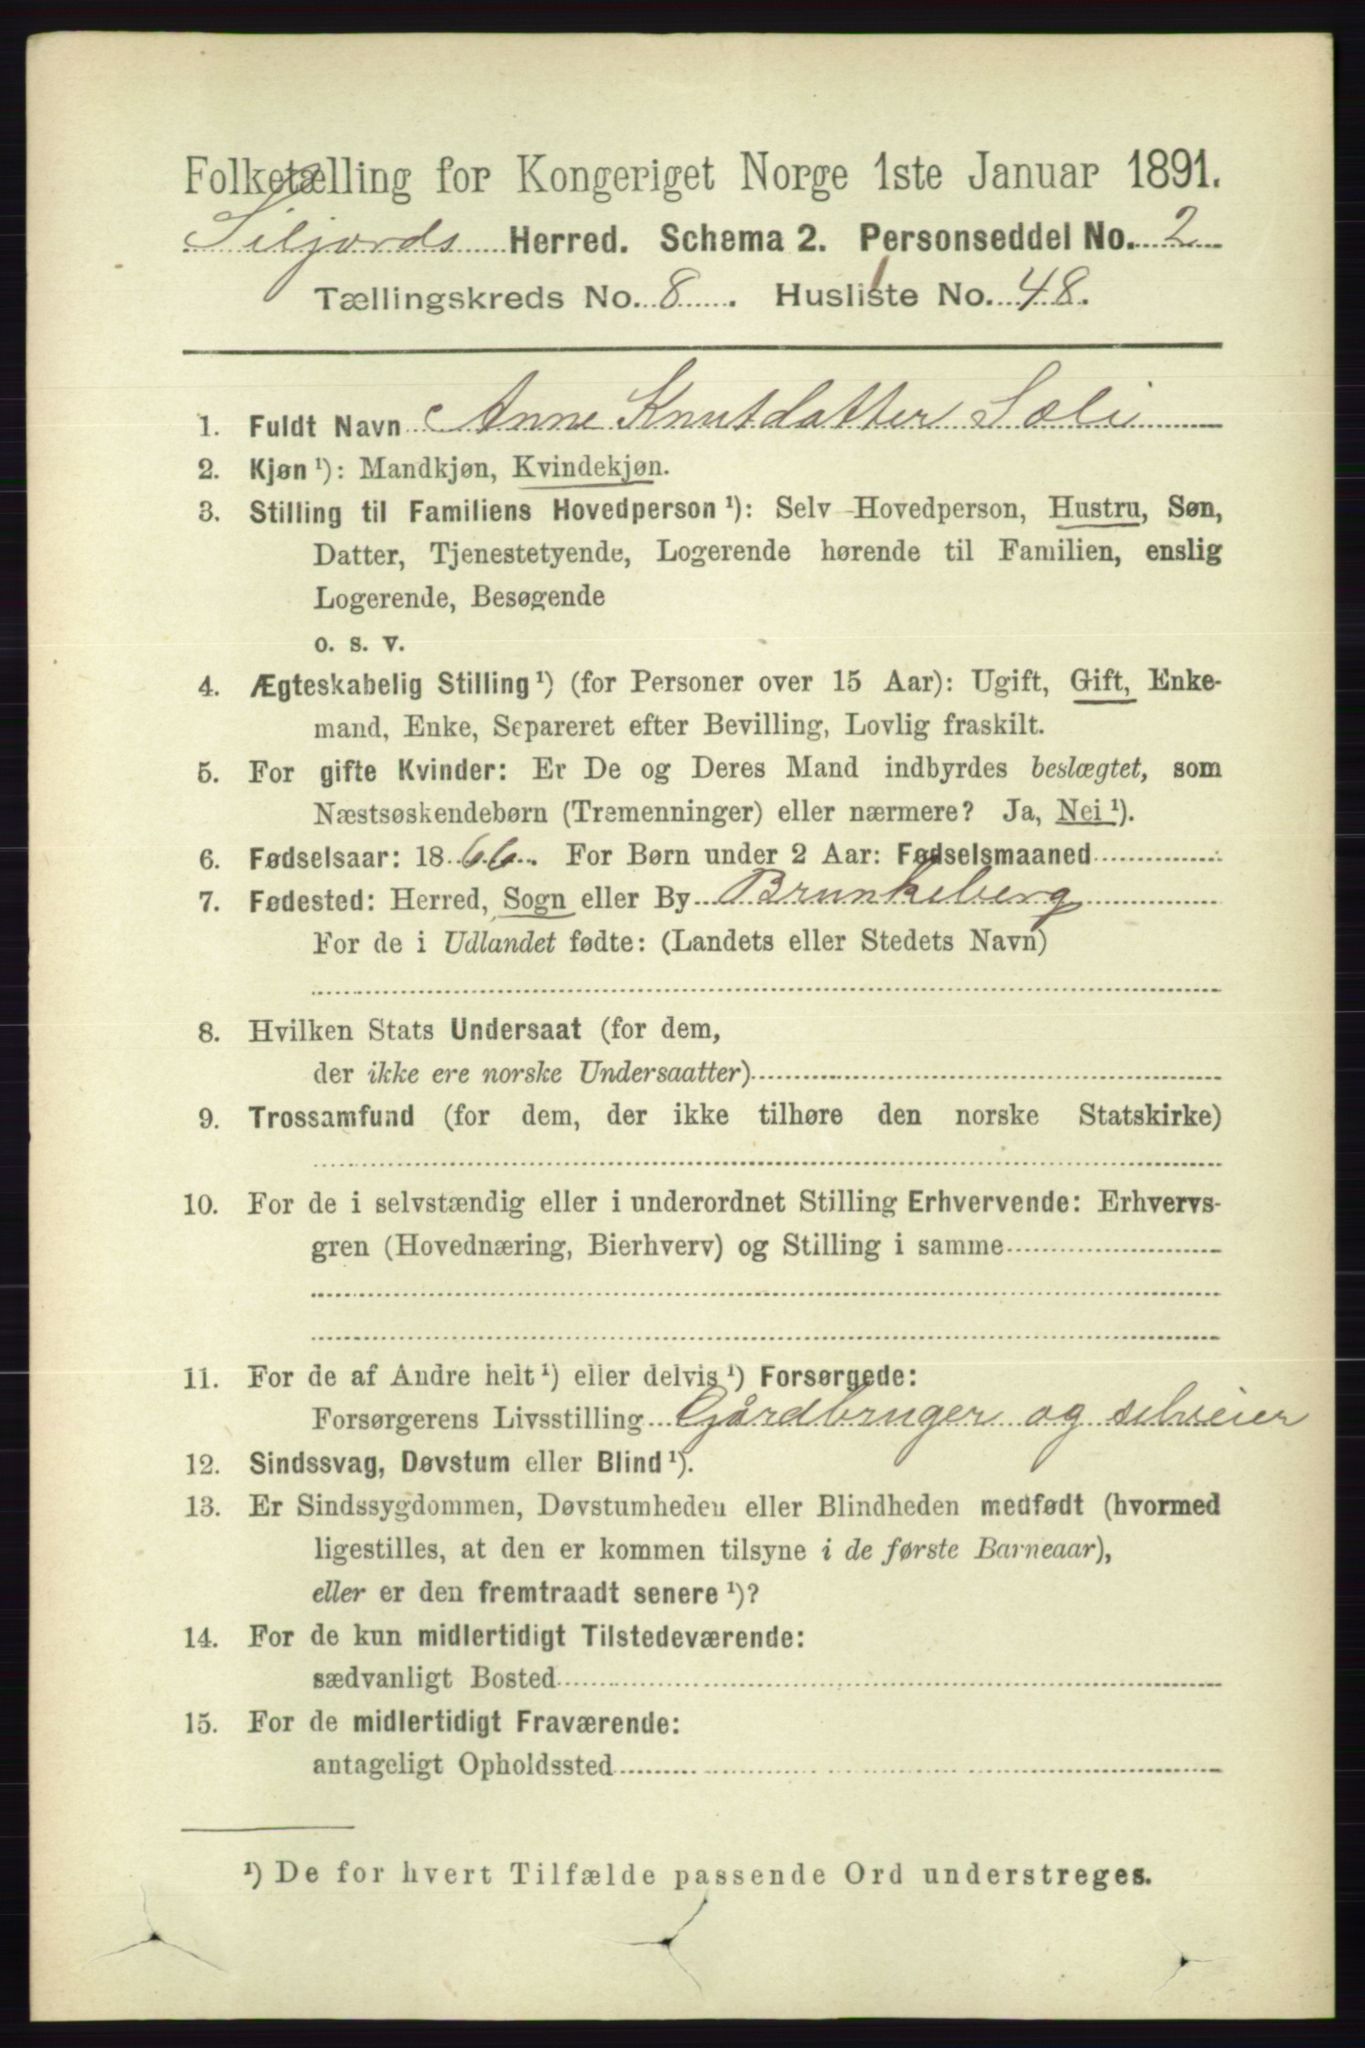 Folketælling for Kongeriget Norge 1ste Januar 1891.
Siljords Herred. Schema 2. Personseddel No. 2
Tællingskreds No. 8. Husliste No. 48.
1. Fuldt Navn Anne Knutdatter Sæli
2. Kjøn ¹): Mandkjøn, Kvindekjøn.
3. Stilling til Familiens Hovedperson ¹): Selv Hovedperson, Hustru, Søn,
Datter, Tjenestetyende, Logerende hørende til Familien, enslig
Logerende, Besøgende
o. s. v.
4. Ægteskabelig Stilling ¹) (for Personer over 15 Aar): Ugift, Gift, Enke-
mand, Enke, Separeret efter Bevilling, Lovlig fraskilt.
5. For gifte Kvinder: Er De og Deres Mand indbyrdes beslægtet, som
Næstsøskendebørn (Tremenninger) eller nærmere? Ja, Nei ¹).
6. Fødselsaar: 1866. For Børn under 2 Aar: Fødselsmaaned
7. Fødested: Herred, Sogn eller By Brunkeberg
For de i Udlandet fødte: (Landets eller Stedets Navn)
8. Hvilken Stats Undersaat (for dem,
der ikke ere norske Undersaatter)
9. Trossamfund (for dem, der ikke tilhøre den norske Statskirke)
10. For de i selvstændig eller i underordnet Stilling Erhvervende: Erhvervs-
gren (Hovednæring, Bierhverv) og Stilling i samme
11. For de af Andre helt ¹) eller delvis ¹) Forsørgede:
Forsørgerens Livsstilling Gårdbruger og selveier
12. Sindssvag, Døvstum eller Blind ¹).
13. Er Sindssygdommen, Døvstumheden eller Blindheden medfødt (hvormed
ligestilles, at den er kommen tilsyne i de første Barneaar),
eller er den fremtraadt senere ¹)?
14. For de kun midlertidigt Tilstedeværende:
sædvanligt Bosted
15. For de midlertidigt Fraværende:
antageligt Opholdssted
¹) De for hvert Tilfælde passende Ord understreges.